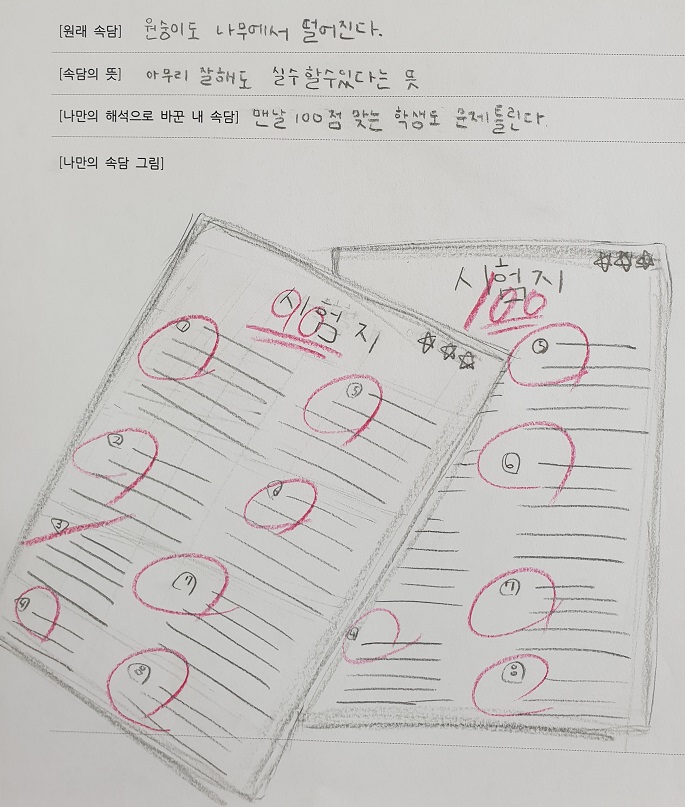 [원래 속담] 원숭이도 나무에서 떨어진다.
[속담의 뜻] 아무리 잘해도 실수할수있다는 뜻
[나만의 해석으로 바꾼 내 속담] 맨날 100점 맞는 학생도 문제틀린다.
[나만의 속담 그림]
시험지
90
①
②
③
④
⑤
⑥
⑦
⑧
시험지
100
④
⑤
⑥
⑦
⑧